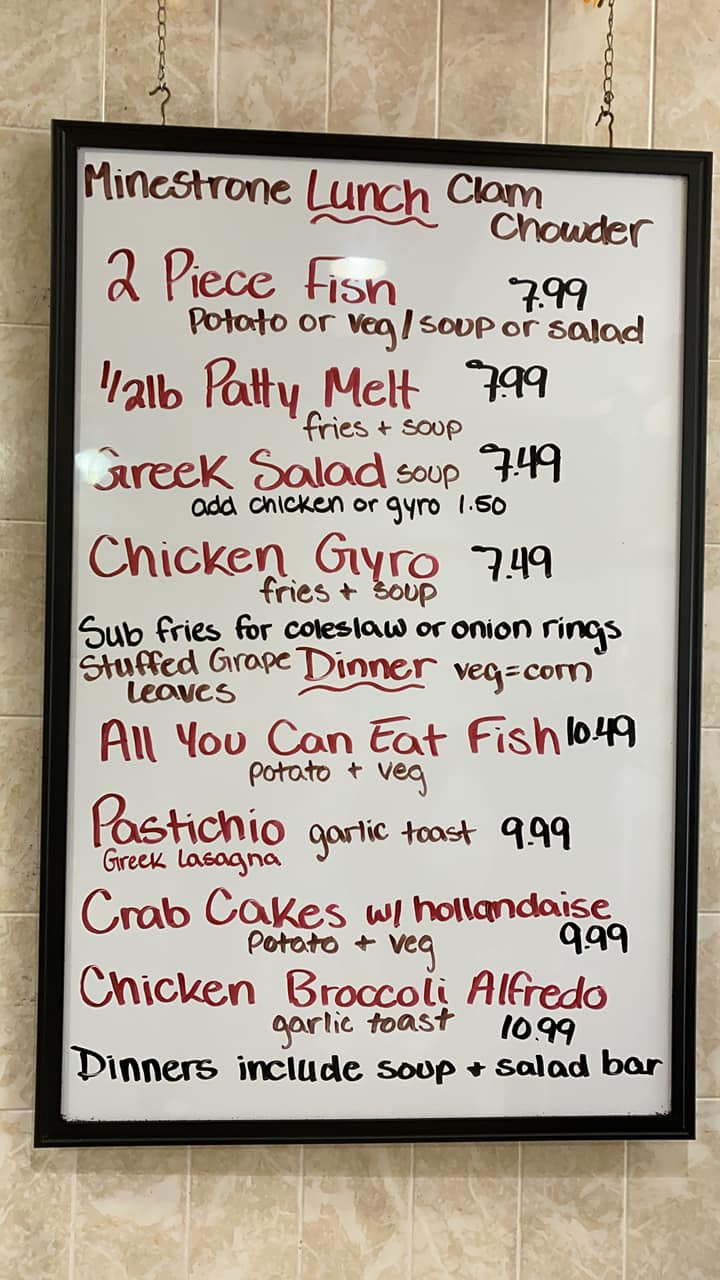 Minestrone Lunch Clam
Chowder
2 Piece Fish 7.99
Potato or veg/soup or salad
1/2lb Patty Melt 7.99
fries + soup
Greek Salad soup 7.49
add chicken or gyro 1.50
Chicken Gyro 7.49
fries + soup
Sub fries for coleslaw or onion rings
Stuffed Grape Dinner veg=corn
Leaves
All You Can Eat Fish 10.49
potato + veg
Pastichio garlic toast 9.99
Greek Lasagna
Crab Cakes w/ hollandaise
Potato + veg 9.99
Chicken Broccoli Alfredo
garlic toast 10.99
Dinners include soup + salad bar